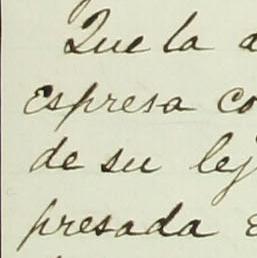 Que la a
espresa co
de su ley
presada e